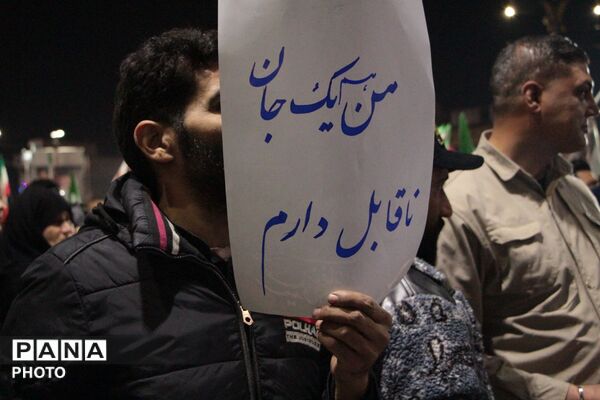 من هم یک جان
ناقابل دارم
POLHAM
PANA
PHOTO